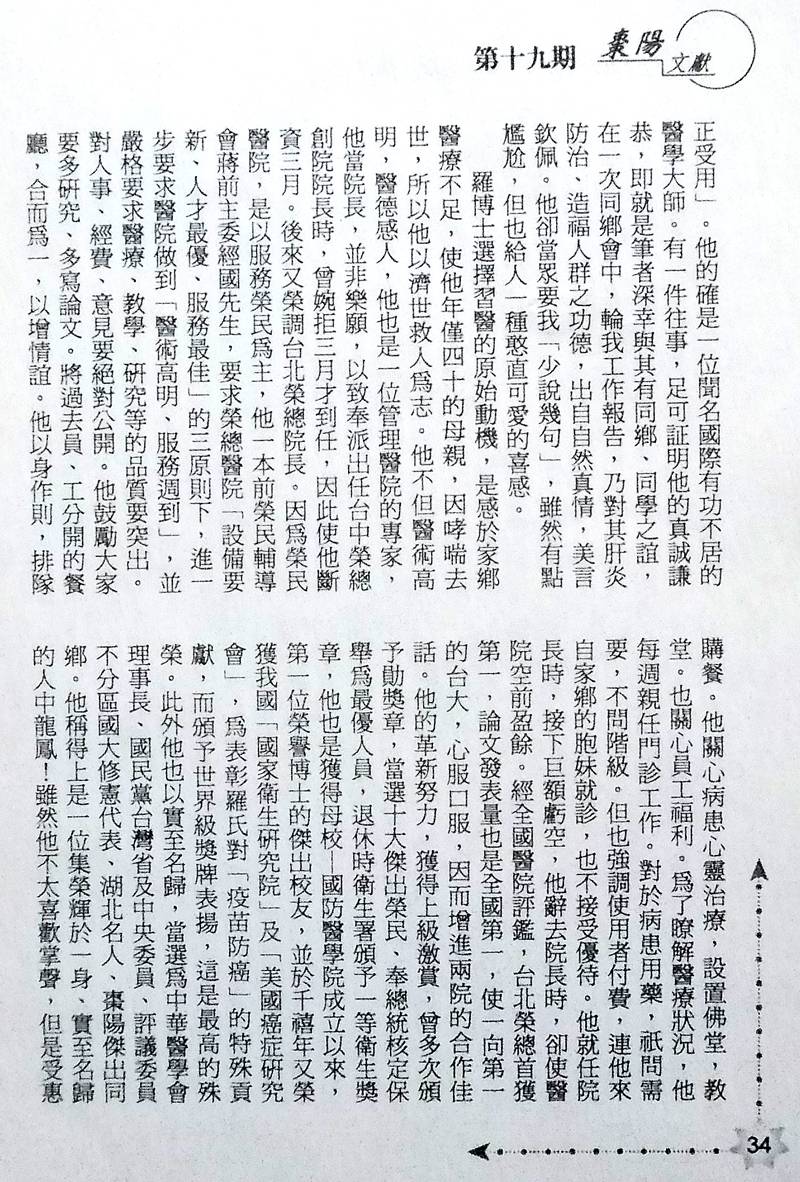 棗陽文獻
第十九期
正受用」。他的確是一位聞名國際有功不居的
醫學大師。有一件往事，足可証明他的真誠謙
恭，即就是筆者深幸與其有同鄉、同學之誼，
在一次同鄉會中，輪我工作報告，乃對其肝炎
防治、造福人群之功德，出自自然真情，美言
欽佩。他卻當眾要我「少說幾句」，雖然有點
尷尬，但也給人一種憨直可愛的喜感。
羅博士選擇習醫的原始動機，是感於家鄉
醫療不足，使他年僅四十的母親，因哮喘去
世，所以他以濟世救人爲志。他不但醫術高
明，醫德感人，他也是一位管理醫院的專家，
他當院長，並非樂願，以致奉派出任台中榮總
創院院長時，曾婉拒三月才到任，因此使他斷
資三月。後來又榮調台北榮總院長。因爲榮民
醫院，是以服務榮民爲主，他一本前榮民輔導
會蔣前主委經國先生，要求榮總醫院「設備要
新、人才最優、服務最佳」的三原則下，進一
步要求醫院做到「醫術高明、服務週到」，並
嚴格要求醫療、教學、研究等的品質要突出。
對人事、經費、意見要絕對公開。他鼓勵大家
要多研究、多寫論文。將過去員、工分開的餐
廳，合而爲一，以增情誼。他以身作則，排隊
購餐。他關心病患心靈治療，設置佛堂，教
堂。也關心員工福利。爲了瞭解醫療狀況，他
每週親任門診工作。對於病患用藥，祇問需
要，不問階級。但也強調使用者付費，連他來
自家鄉的胞妹就診，也不接受優待。他就任院
長時，接下巨額虧空，他辭去院長時，卻使醫
院空前盈餘。經全國醫院評鑑，台北榮總首獲
第一，論文發表量也是全國第一，使一向第一
的台大，心服口服，因而增進兩院的合作佳
話。他的革新努力，獲得上級激賞，曾多次頒
予勛獎章，當選十大傑出榮民、奉總統核定保
舉爲最優人員，退休時衛生署頒予一等衛生獎
章，他也是獲得母校—國防醫學院成立以來，
第一位榮譽博士的傑出校友，並於千禧年又榮
獲我國「國家衛生研究院」及「美國癌症研究
會」，爲表彰羅氏對「疫苗防癌」的特殊貢
獻，而頒予世界級獎牌表揚，這是最高的殊
榮。此外他也以實至名歸，當選爲中華醫學會
理事長、國民黨台灣省及中央委員、評議委員
不分區國大修憲代表、湖北名人、棗陽傑出同
鄉。他稱得上是一位集榮輝於一身、實至名歸
的人中龍鳳！雖然他不太喜歡掌聲，但是受惠
34